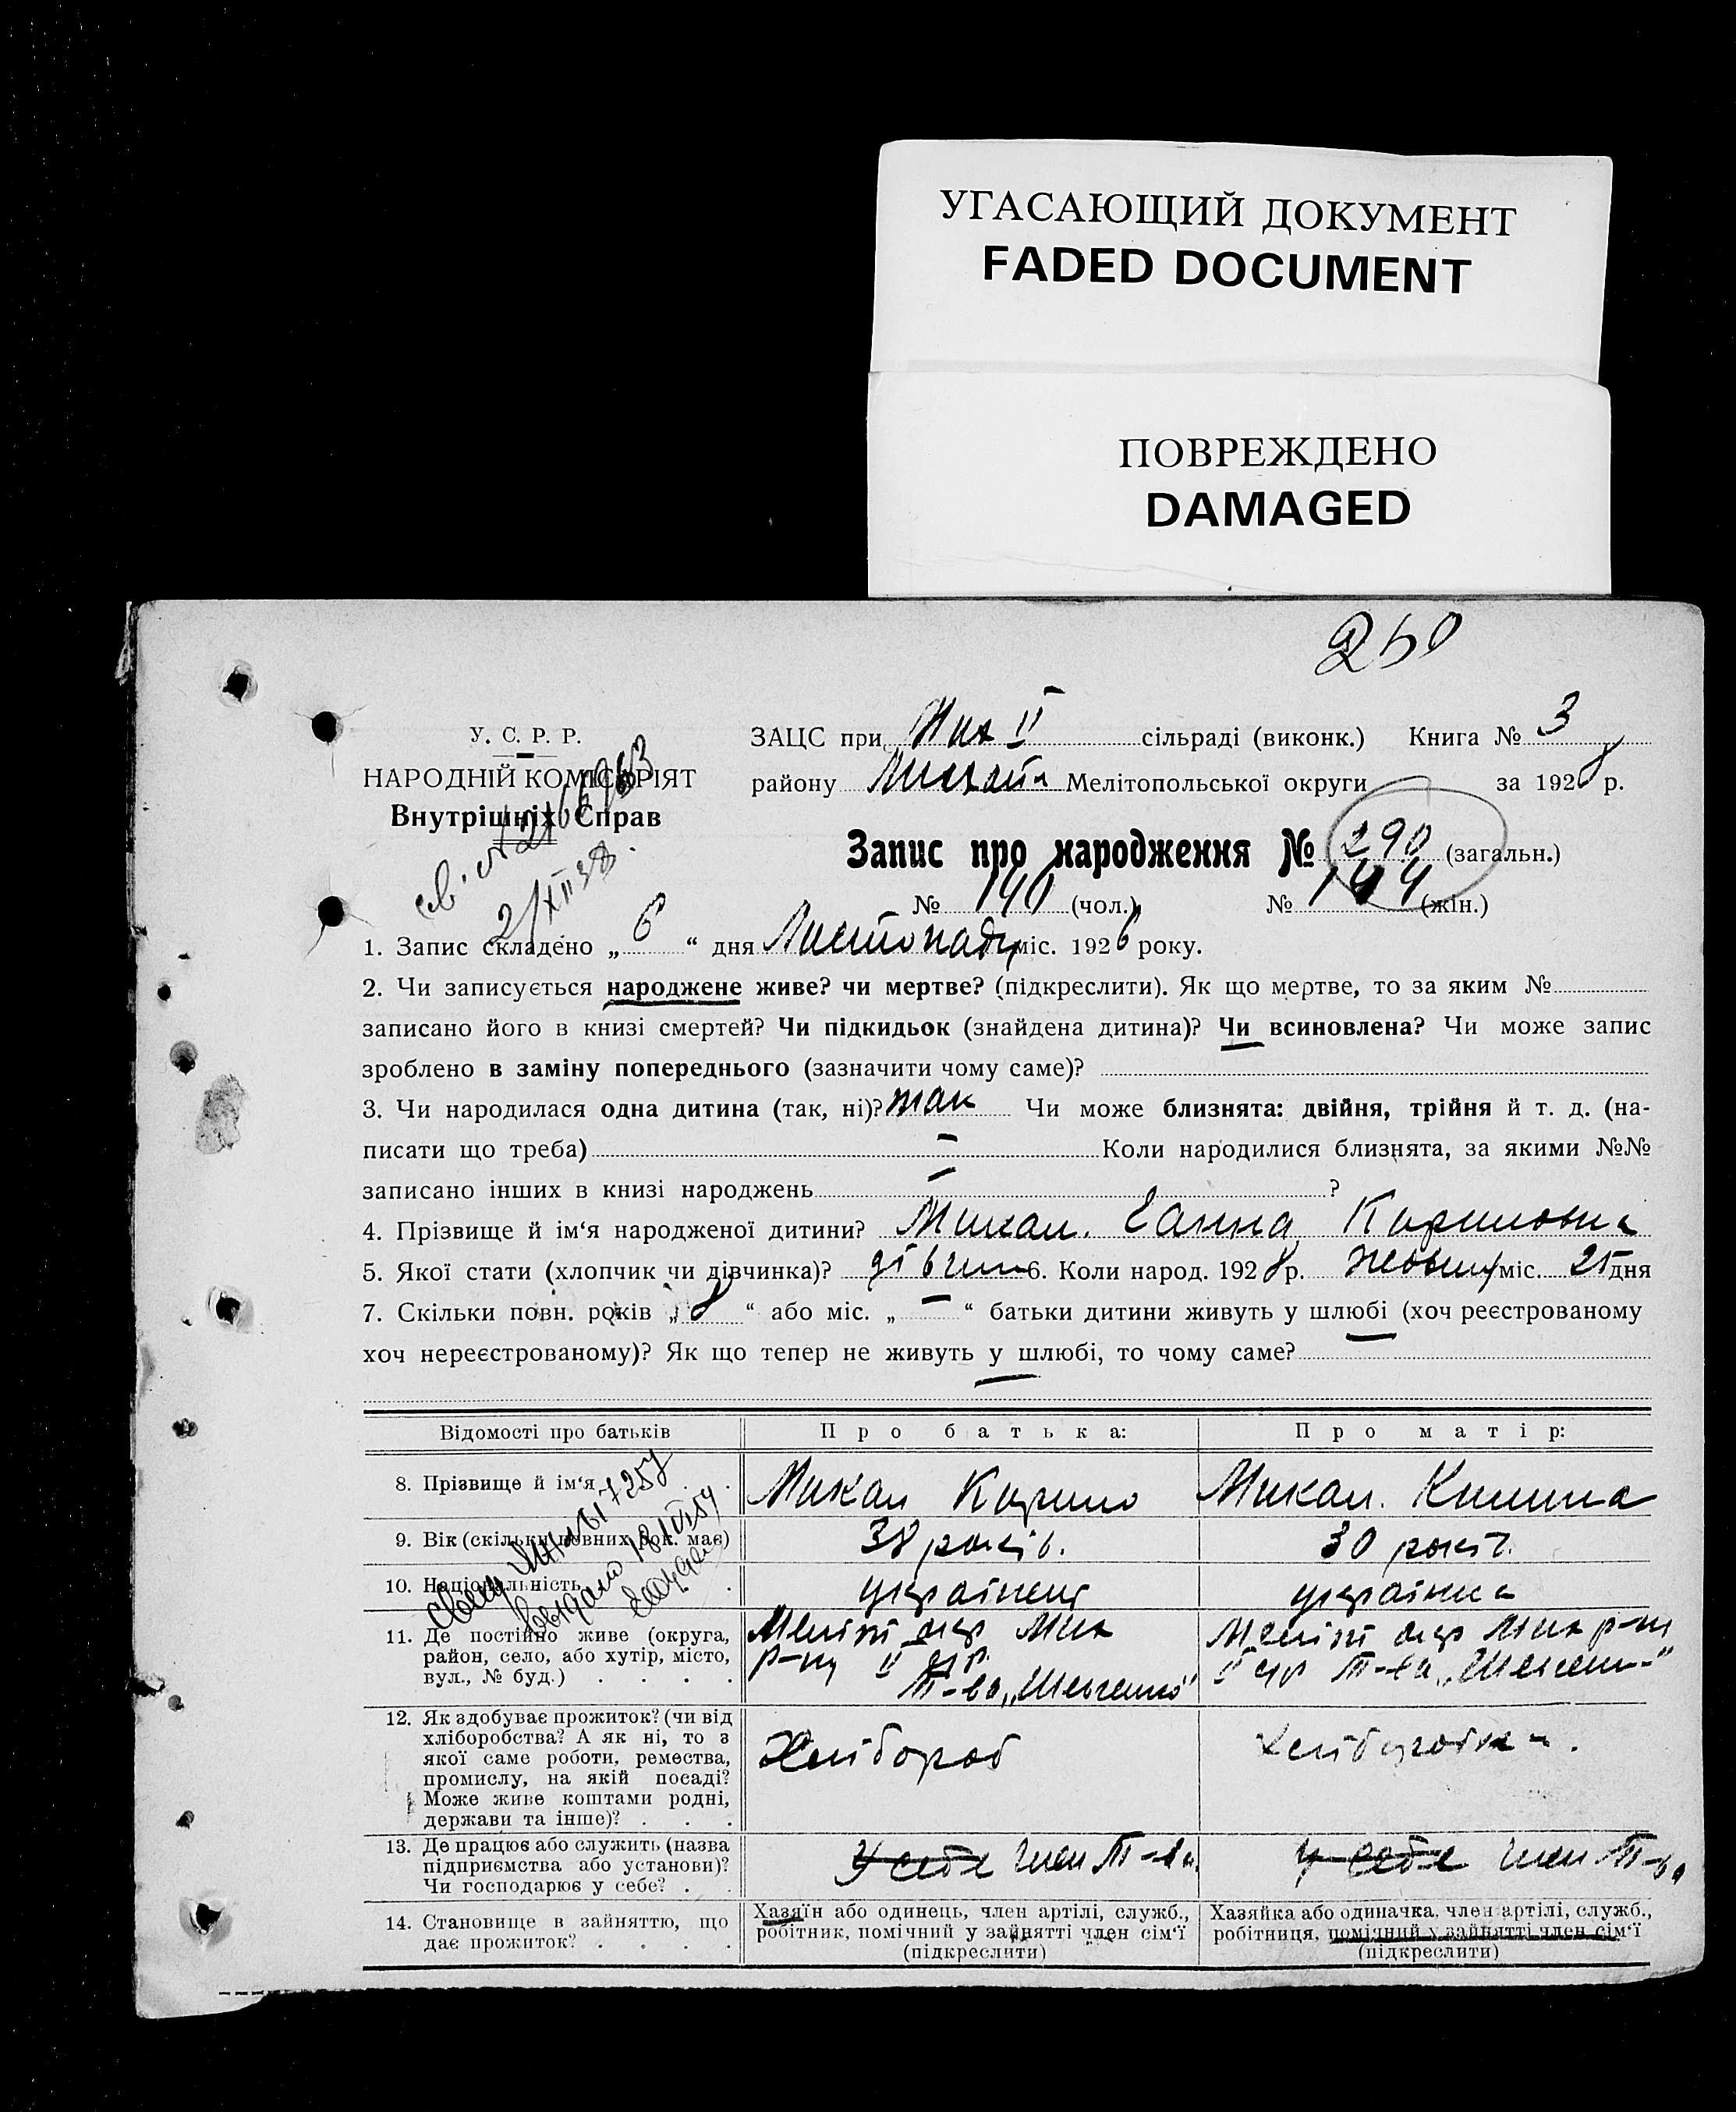 УГАСАЮЩИЙ ДОКУМЕНТ
FADED DOCUMENT
ПОВРЕЖДЕНО
DAMAGED
250
У. С. Р. Р.
НАРОДНІЙ КОМІСАРІЯТ
Внутрішніх Справ
ЗАЦС при Мих II сільраді (виконк.) Книга № 3
району Михайл Мелітопольської округи за 1928 р.
Запис про народження № 290 (загальн.)
№ 140 (чол.) № 144 (жін.)
21/XII 38
1. Запис складено „ 6 “ дня Листопаду міс. 192 року.
2. Чи записується народжене живе? чи мертве? (підкреслити). Як що мертве, то за яким №
записано його в книзі смертей? Чи підкидьок (знайдена дитина)? Чи всиновлена? Чи може запис
зроблено в заміну попереднього (зазначити чому саме)?
3. Чи народилася одна дитина (так, ні)? так Чи може близнята: двійня, трійня й т. д. (на-
писати що треба) — Коли народилися близнята, за якими №№
записано інших в книзі народжень — ?
4. Прізвище й ім‘я народженої дитини? Микал. Ганна Кириловна
5. Якої стати (хлопчик чи дівчинка)? дівчин 6. Коли народ. 1928 р. Жовтн міс. 25 дня
7. Скільки повн. років „ 8 “ або міс. „ — “ батьки дитини живуть у шлюбі (хоч реєстрованому
хоч нереєстрованому)? Як що тепер не живуть у шлюбі, то чому саме?
Відомості про батьків Про батька: Про матір:
8. Прізвище й ім‘я Микал Кирило Микал. Килина
9. Вік (скільки повних рок. має) 38 років. 30 років.
10. Національність українець українка
11. Де постійно живе (округа, район, село, або хутір, місто, вул., № буд.)
Меліт окр Мих
р-ну II
т-во „Шевченко“
Меліт окр Мих р-ну
II т-ва „Шевченк“
12. Як здобуває прожиток? (чи від
хліборобства? А як ні, то з
якої саме роботи, ремества,
промислу, на якій посаді?
Може живе коштами родні,
держави та інше)?
Хлібороб
13. Де працює або служить (назва
підприємства або установи)?
Чи господарює у себе?
У себе член т-ва
У себе член т-ва
14. Становище в зайняттю, що
дає прожиток?
Хазяїн або одинець, член артілі, служб.,
робітник, помічний у зайнятті член сім‘ї
(підкреслити)
Хазяйка або одиначка, член артілі, служб.,
робітниця, помічний у зайнятті член сім‘ї
(підкреслити)